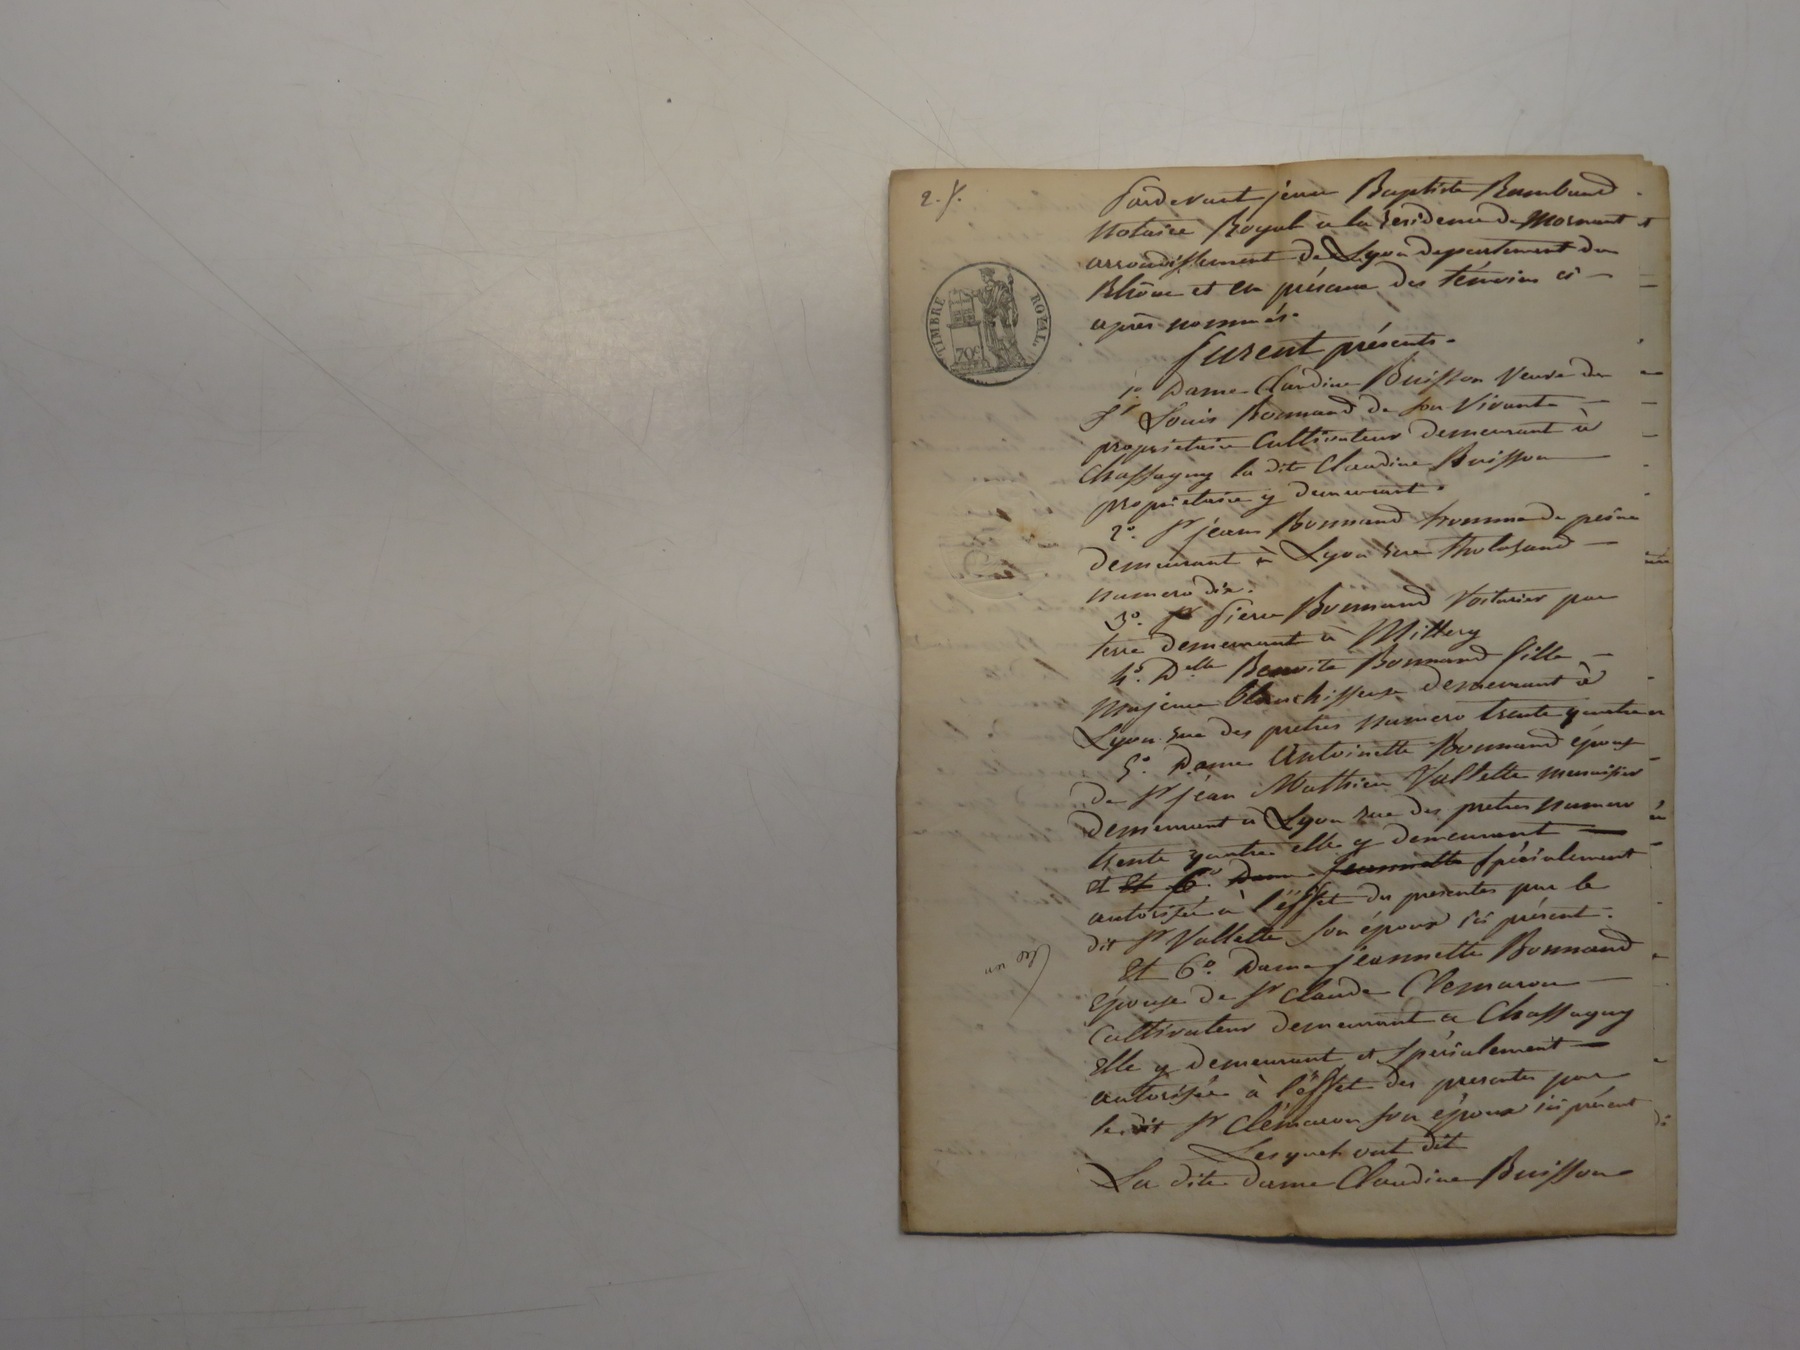 2. f.
TIMBRE ROYAL
70c
Pardevant jean Baptiste Rambaud
Notaire Royal a la residence de Mornant
arrondissement de Lyon departement du
Rhône et en présence des témoins ci
après nommés.
furent présents.
1º. Dame Claudine Buisson veuve du
Sr Louis Bonnand de son vivant
propriétaire Cultivateur demeurant à
Chassagny la dite Claudine Buisson
propriétaire y demeurant.
2º. Sr jean Bonnand homme de peine
demeurant à Lyon rue tholozand
numero dix.
3º. Sr Pierre Bonnand Voiturier par
terre demeurant à Millery
4º. Delle Benoite Bonnand fille
Majeure blanchisseuse demeurant à
Lyon rue des pretres numero trente quatre
5º. Dame Antoinette Bonnand épouse
de Sr jean Mathieu Vallette menuisier
demeurant a Lyon rue des pretres numero
trente quatre elle y demeurant
et Et 6º. Dame Jeannette Spécialement
autorisée à l'éffet des presentes par le
dit Sr Vallette son époux ici présent.
Et 6º. Dame jeannette Bonnand
Epouse de Sr Claude Clemaron
Cultivateur demeurant a Chassagny
Elle y demeurant et Spécialement
autorisée à l'éffet des presentes par
le dit Sr Clémaron son époux ici présent
Lesquels ont dit
La dite dame Claudine Buisson